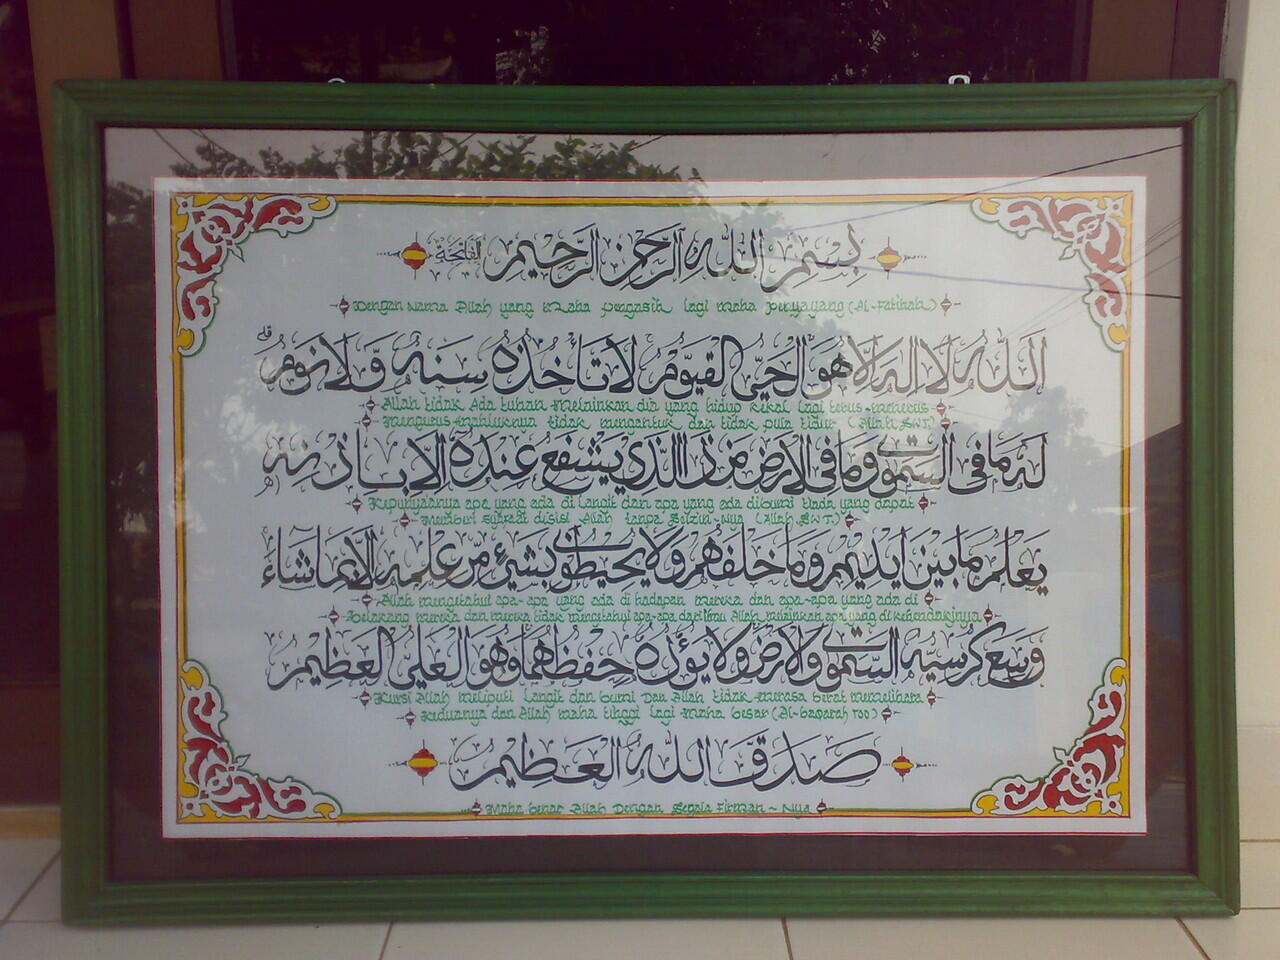 بسم الله الرحمن الرحيم الفاتحة
Dengan Nama Allah yang Maha Pengasih lagi maha Penyayang (Al-Fatihah)
الله لا إله إلا هو الحي القيوم لا تأخذه سنة ولا نوم
Allah tidak Ada tuhan melainkan dia yang hidup kekal lagi terus-menerus
mengurus makhluknya tidak mengantuk dan tidak pula tidur (Allah SWT)
له ما في السموت وما في الارض من ذا الذي يشفع عنده الا باذنه
Kepunyaanya apa yang ada di langit dan apa yang ada dibumi tiada yang dapat
Memberi syafaat disisi Allah tanpa Seizin-Nya (Allah SWT)
يعلم ما بين ايديهم وما خلفهم ولا يحيطون بشيء من علمه الا بما شاء
Allah mengetahui apa-apa yang ada di hadapan mereka dan apa-apa yang ada di
Belakang mereka dan mereka tidak mengetahui apa-apa dari Ilmu Allah melainkan apa yang di kehendakinya
وسع كرسيه السموت والارض ولا يؤده حفظهما وهو العلي العظيم
Kursi Allah meliputi Langit dan bumi Dan Allah tidak merasa berat memelihara
Keduanya dan Allah maha tinggi lagi maha besar (Al-baqarah ٢٥٥)
صدق الله العظيم
Maha benar Allah Dengan Segala Firman-Nya